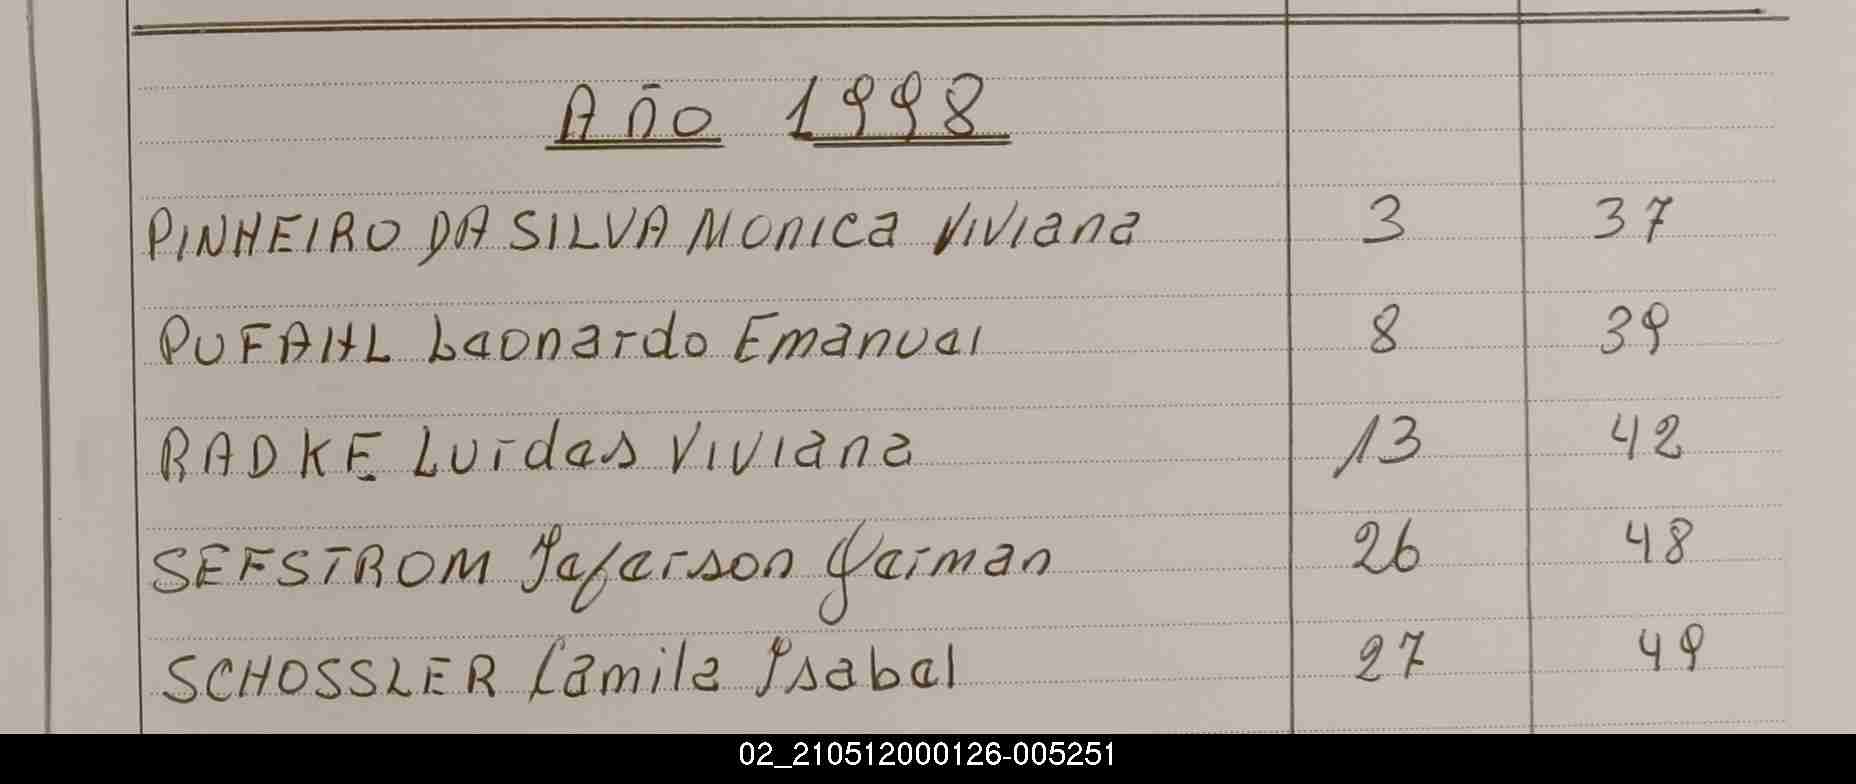 Año 1998
PINHEIRO DA SILVA Monica Viviana 3 37
PUFAHL Leonardo Emanuel 8 39
RADKE Lurdes Viviana 13 42
SEFSTROM Jeferson Yerman 26 48
SCHOSSLER Camila Ysabel 27 49
02_210512000126-005251